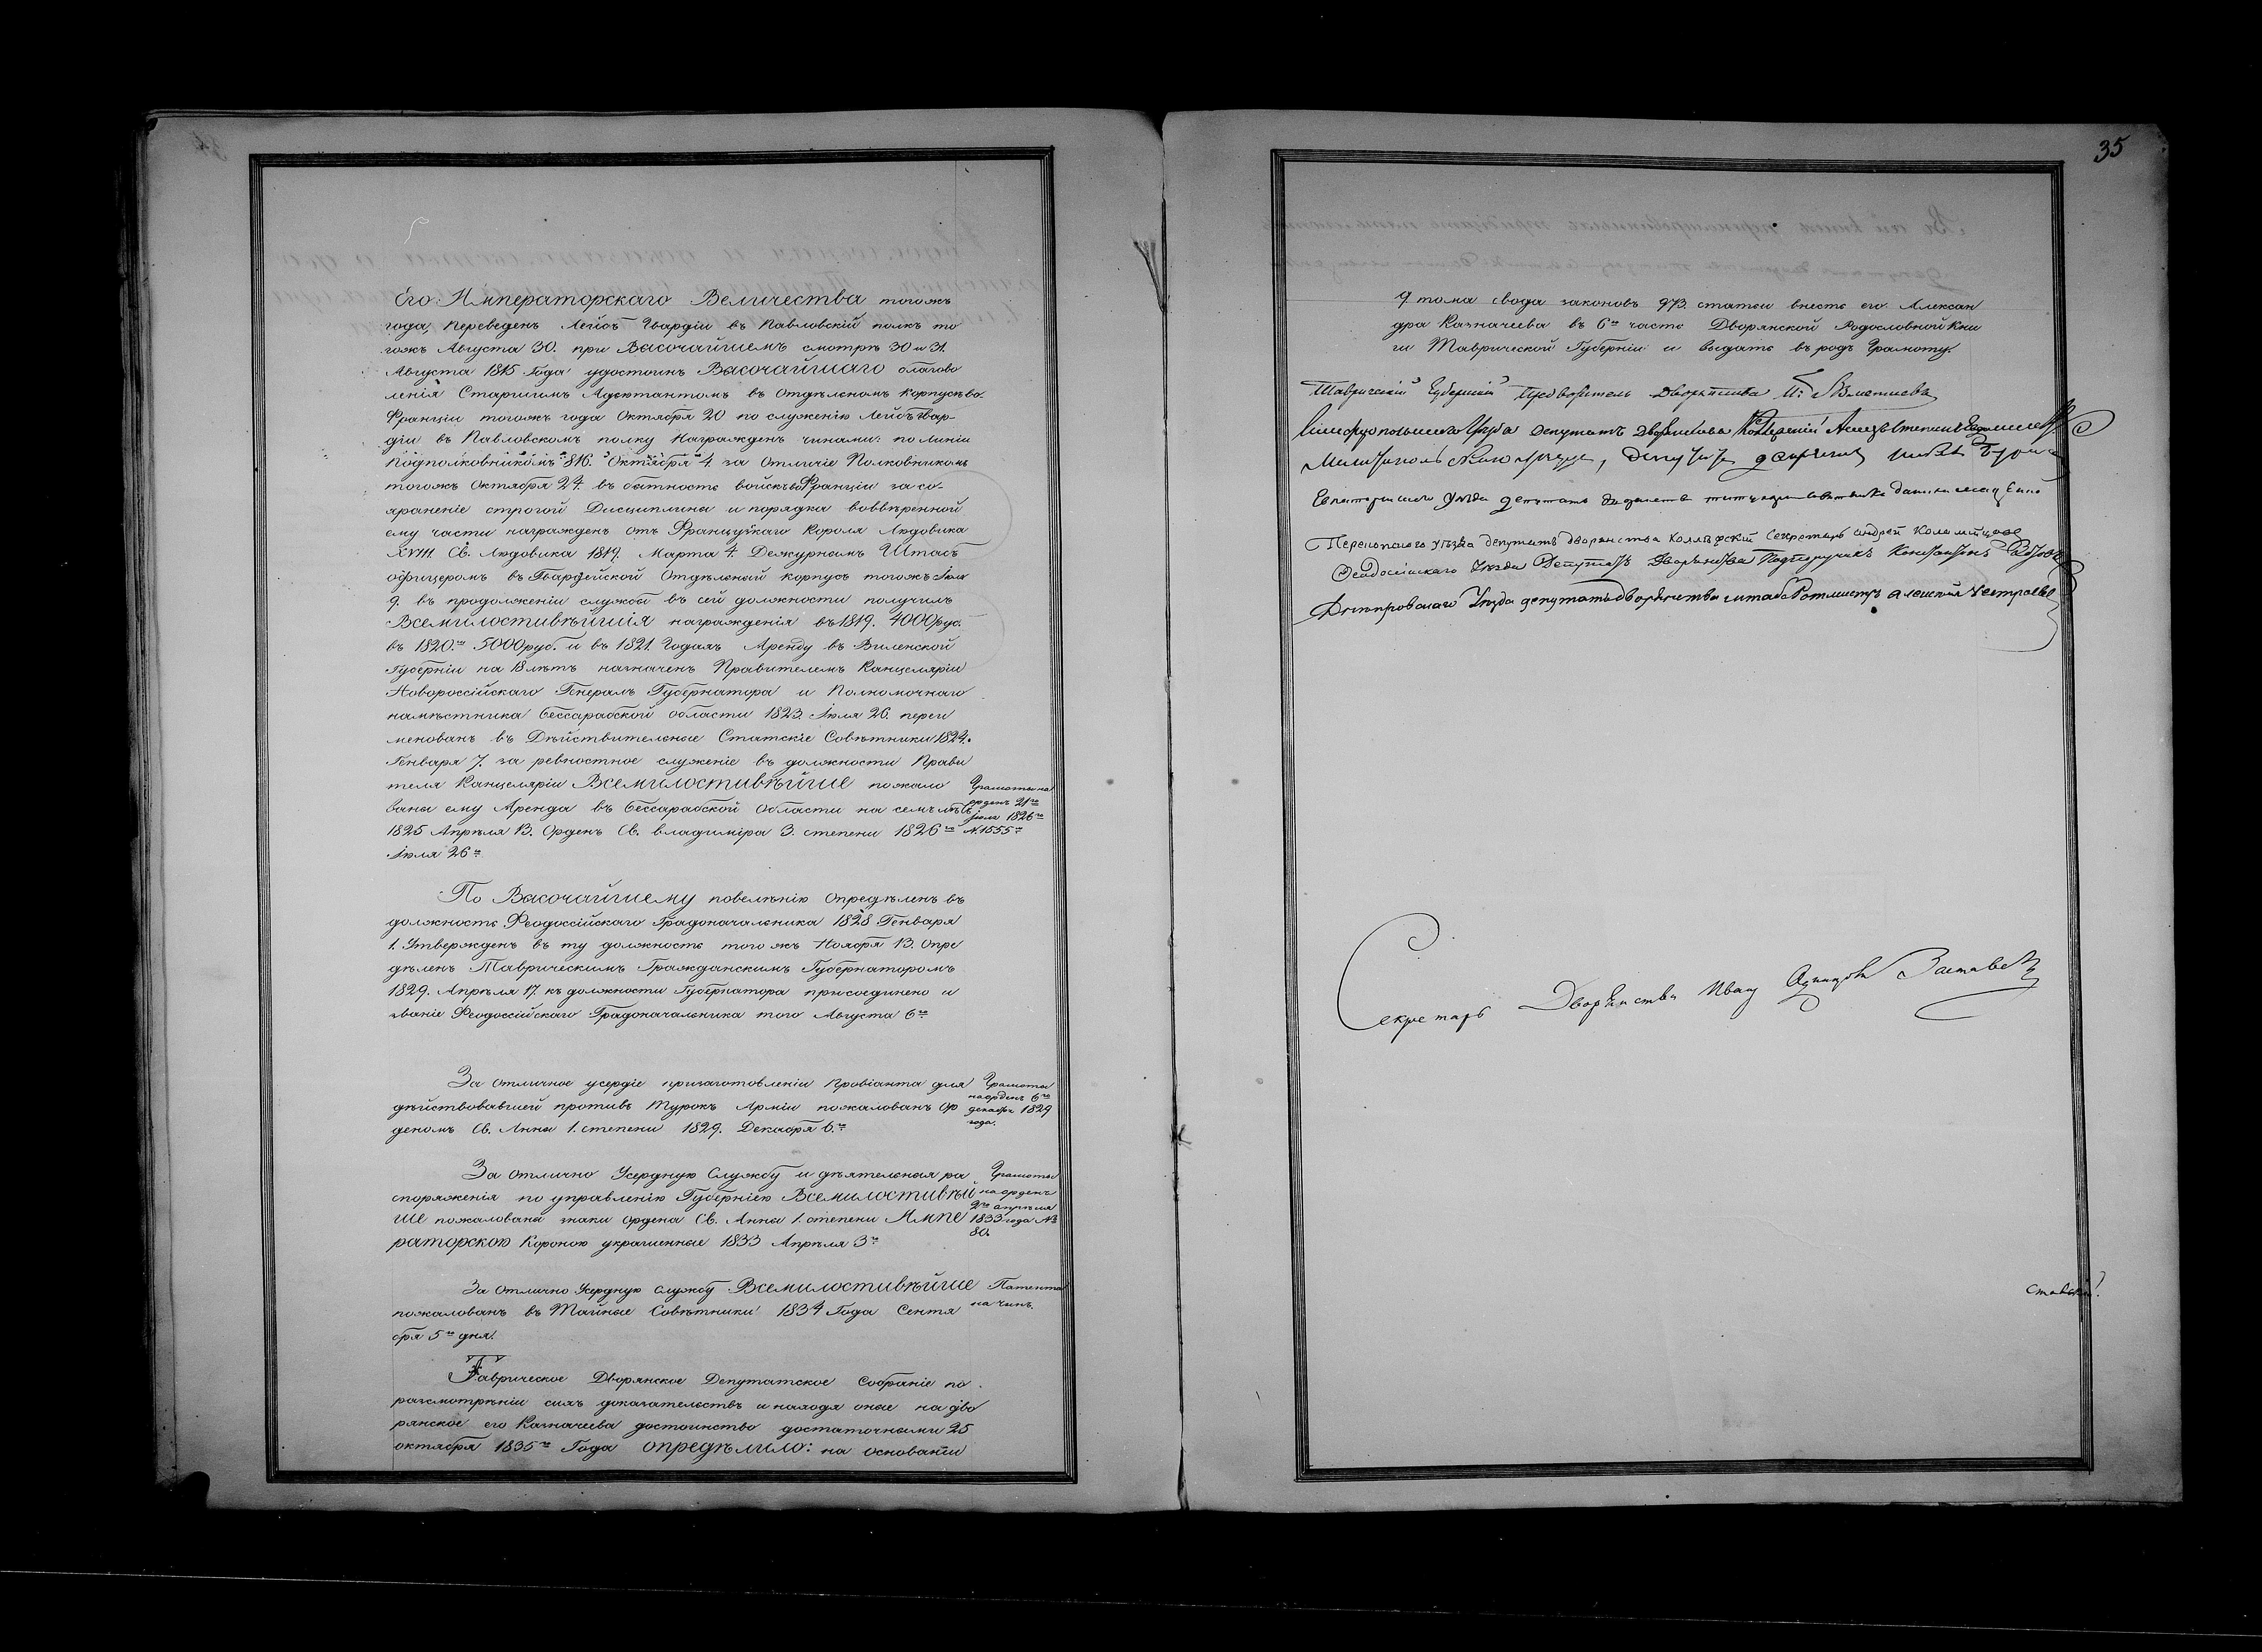 Его Императорскаго Величества тогожъ
года, переведенъ Лейбъ Гвардіи въ Павловскій полкъ то
гожъ Августа 30. при Высочайшемъ смотрѣ 30 и 31.
Августа 1815 года удостоинъ Высочайшаго благово
ленія Старшимъ Адъютантомъ въ Отдѣльномъ Корпусѣ во
Франціи тогожъ года Октября 20 по служенію Лейбъ Гвар-
діи въ Павловскомъ полку Награжденъ чинами: по линіи
Подполковникомъ 816. Октября 4. за Отличіе Полковникомъ
тогожъ Октября 24. въ бытность войскъ во Франціи за со-
храненіе строгой Дисциплины и порядка во ввѣренной
ему части награжденъ отъ Французкаго Короля Людовика
XVIII Св. Людовика 1817. Марта 4. Дежурнымъ Штабъ
офицеромъ въ Гвардейской Отдѣльный корпусъ тогожъ Іюля
9. въ продолженіи службы въ сей должности получилъ
Всемилостивѣйшія награжденія въ 1819. 4000 руб.
въ 1820.мъ 5000 руб. и въ 1821. Годахъ Аренду въ Виленской
Губерніи на 18 лѣтъ назначенъ Правителемъ Канцеляріи
Новороссійскаго Генералъ Губернатора и Полномочнаго
намѣстника Бессарабской области 1823. Іюля 26. переи
менованъ въ Дѣйствительные Статскіе Совѣтники 1824.
Генваря 7. за ревностное служеніе въ должности Прави
теля Канцеляріи Всемилостивѣйше пожало
вана ему Аренда въ Бессарабской Области на семъ лѣтъ
1825 Апрѣля 13. Орденъ Св. Владиміра 3. степени 1826го
Іюля 26го
Грамоты на
орденъ 21го
Іюля 1826го
№ 1555й
По Высочайшему повелѣнію Опредѣленъ въ
должность Феодоссійскаго Градоначальника 1828 Генваря
1. Утвержденъ въ ту должность того жъ Ноября 13. Опре
дѣленъ Таврическимъ Гражданскимъ Губернаторомъ
1829. Апрѣля 17. къ должности Губернатора присоединено и
званіе Феодоссійскаго Градоначальника того Августа 6го
За Отличное усердіе при заготовленіи Провіанта для
дѣйствовавшей противъ Турокъ Арміи пожалованъ Ор
деномъ Св. Анны 1. степени 1829. Декабря 6.го
Грамоты
на орденъ 6го
декабря 1829
года.
За Отлично Усердную Службу и дѣятельныя ра
споряженія по управленію Губерніею Всемилостивѣй
ше пожалованы знаки ордена Св. Анны 1. степени Импе
раторскою Короною украшенные 1833 Апрѣля 3го
Грамоты
на орденъ
апрѣля
1833 года №
80.
За Отлично Усердную службу Всемилостивѣйше
пожалованъ въ Тайные Совѣтники 1834 Года Сентя
бря 5го дня.
Патента
на чинъ.
Таврическое Дворянское Депутатское Собраніе по
разсмотрѣніи сихъ доказательствъ и находя оные на дво
рянское его Казначеева достоинство достаточными 25
октября 1835го Года опредѣлило: на основаніи
35
9 тома свода законовъ 973. статьи внесть его Алексан
дра Казначеева въ 6ю часть Дворянской Родословной Кни
ги Таврической Губерніи и выдать въ родъ Грамоту.
Таврическій Губернскій Предводитель Дворянства
Симферопольскаго Уѣзда депутатъ Дворянства
Евпаторійскаго Уѣзда депутатъ дворянства титулярный совѣтникъ
Перекопскаго уѣзда депутатъ дворянства коллежскій секретарь андрей
Феодосійскаго Уѣзда Депутатъ Дворянства Подпоручикъ
Днѣпровскаго Уѣзда депутатъ дворянства штабсъ Ротмистръ алексей
Секретарь Дворянства Иванъ